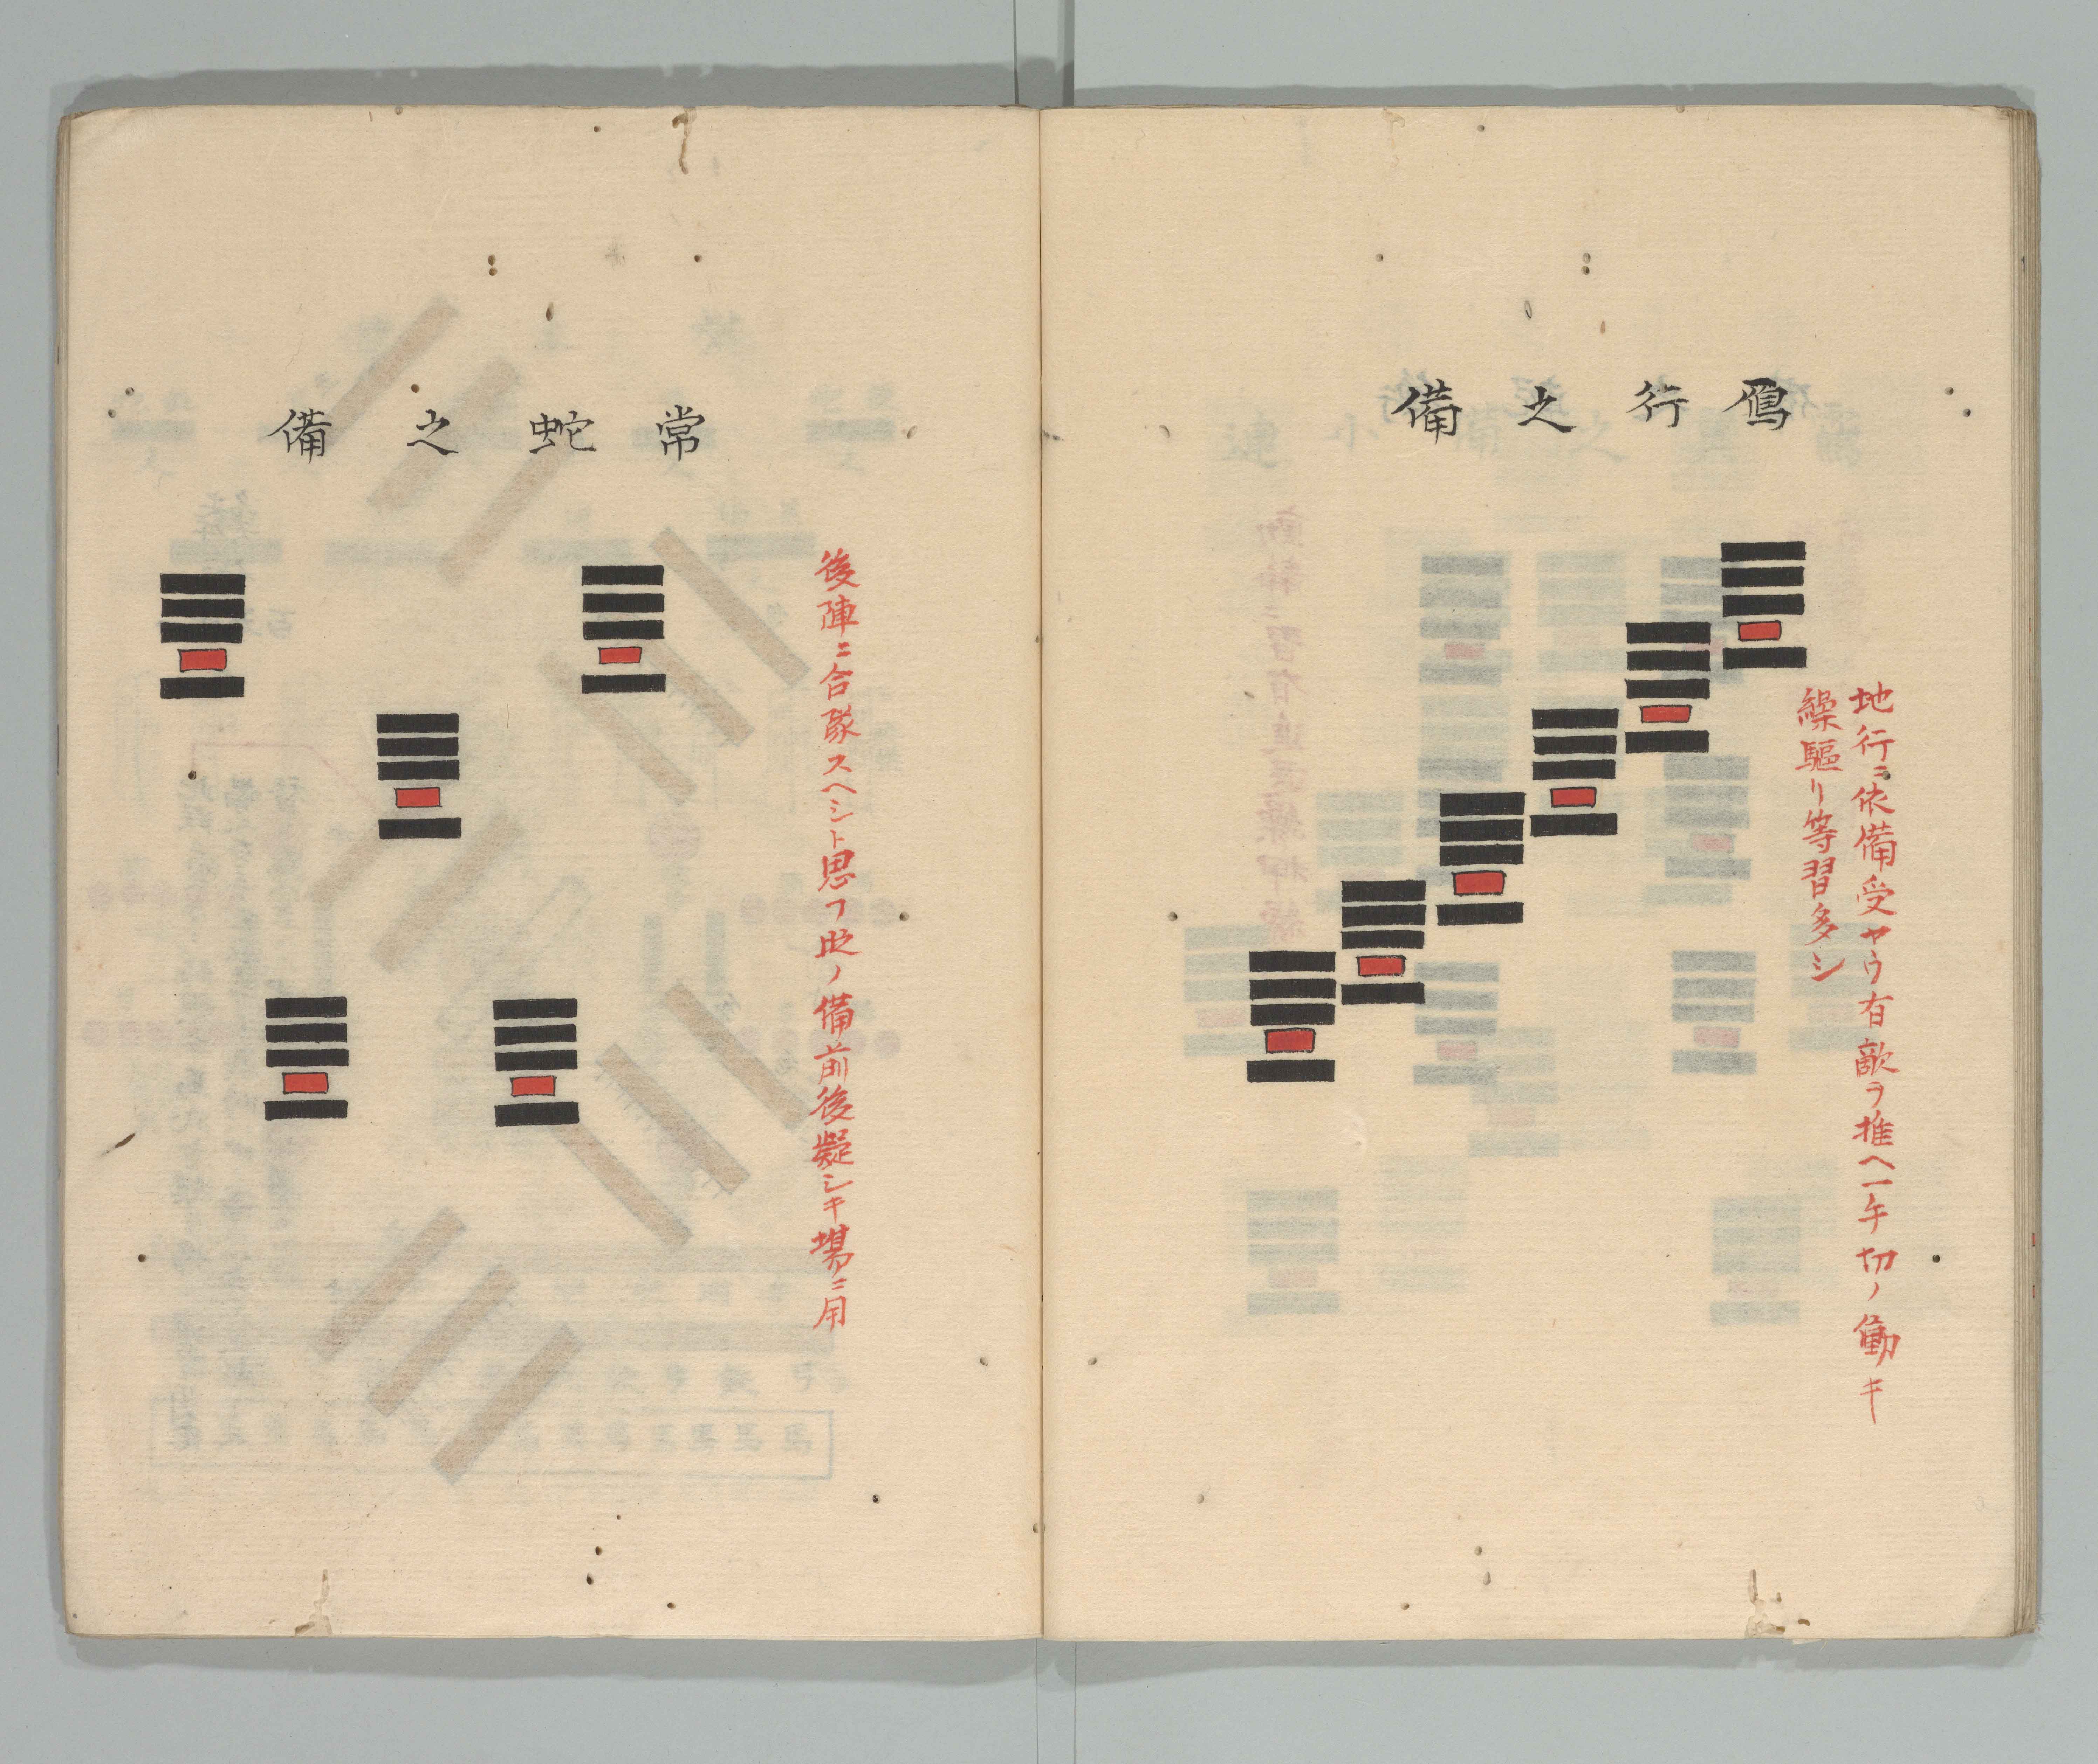 鳫行之備
地行ニ依備受ヤウ有敵ヲ推ヘ一手切ノ働キ
繰驅リ等習多シ
常蛇之備
後陣ニ合隊スヘシト思フ時ノ備前後凝シキ場ニ用